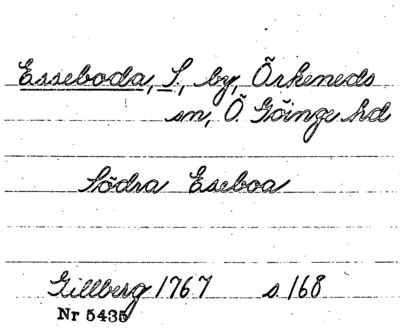 Esseboda, S., by, Örkeneds
sn, Ö. Göinge hd
Södra Eseboa
Gillberg 1767 s 168
Nr 5435